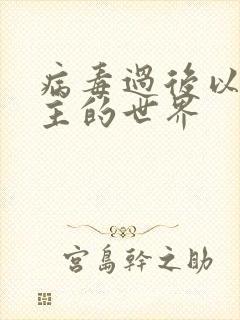 病毒過後以
主的世界
宮島幹之助